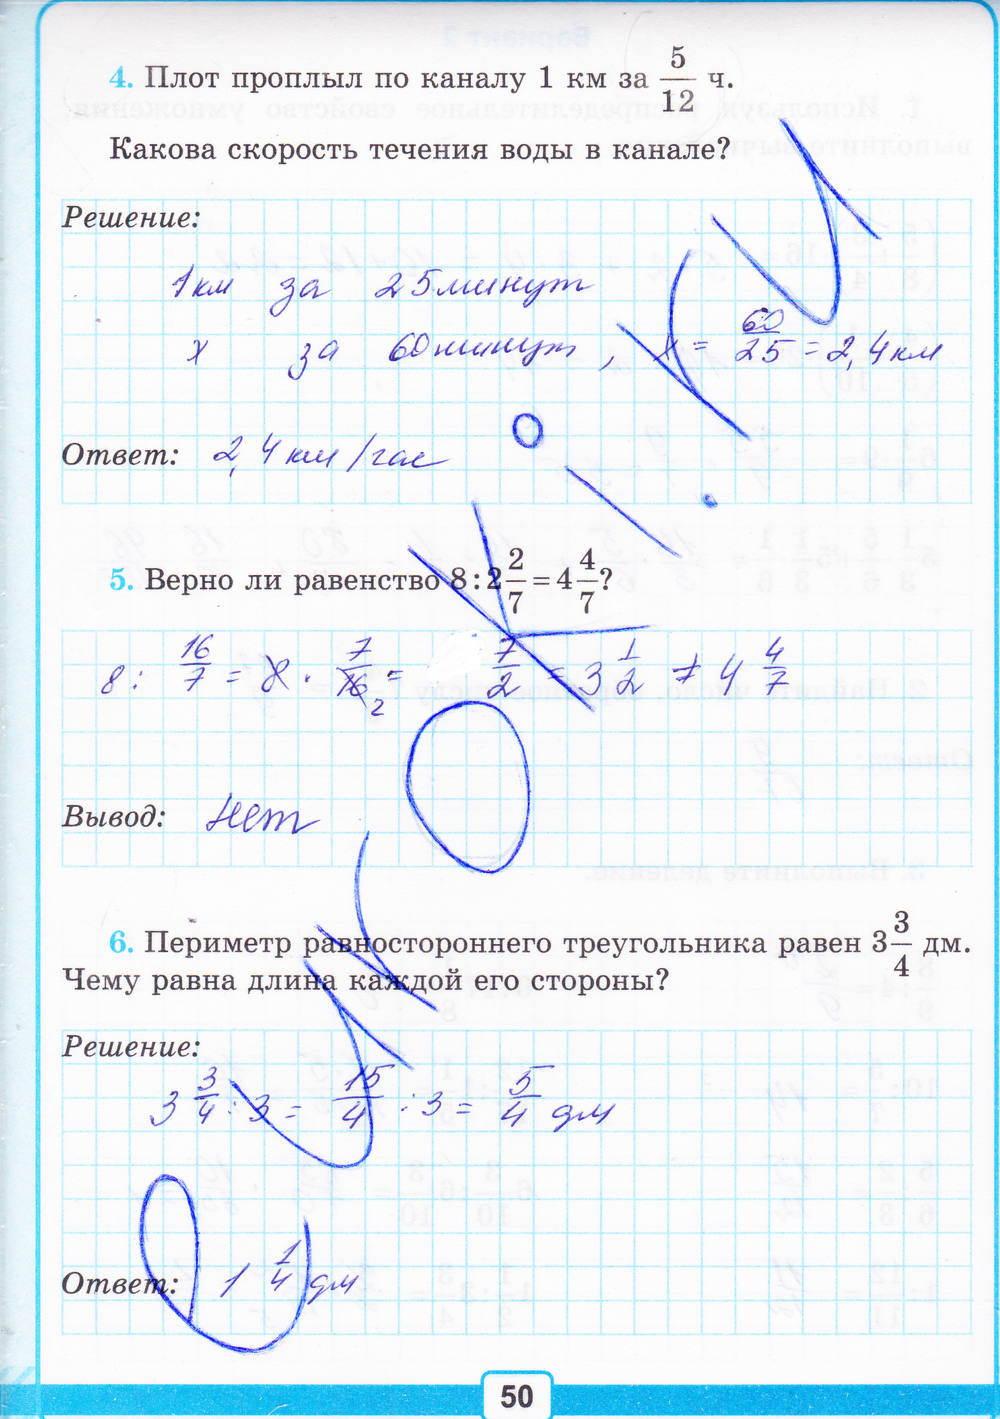 4. Плот проплыл по каналу 1 км за 5/12 ч.
Какова скорость течения воды в канале?
Решение:
1 км за 25 минут
х за 60 минут, х = 60/25 = 2,4 км
Ответ: 2,4 км/час
5. Верно ли равенство 8 : 2 2/7 = 4 4/7?
8 : 16/7 = 8 · 7/16 2 = 7/2 = 3 1/2 ≠ 4 4/7
Вывод: нет
6. Периметр равностороннего треугольника равен 3 3/4 дм.
Чему равна длина каждой его стороны?
Решение:
3 3/4 : 3 = 15/4 : 3 = 5/4 дм
Ответ: 1 1/4 дм
50